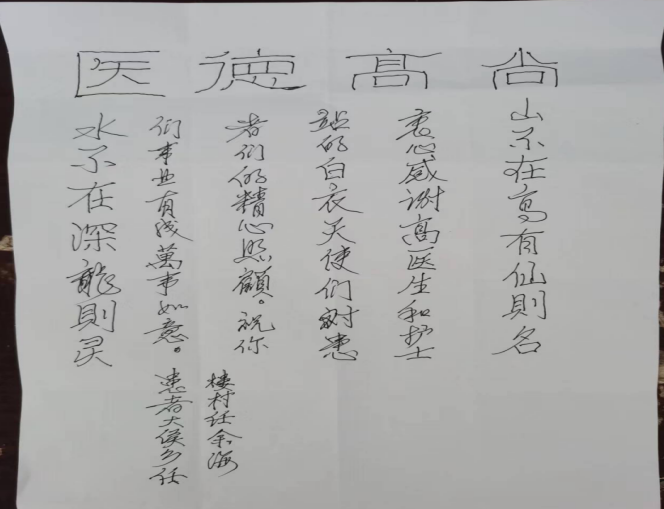 医徳髙尚
山不在高有仙則名
衷心感谢高医生和护士
站的白衣天使们对患
者们的精心照顧。祝你
们事业有成萬事如意。
水不在深龍則灵
患者大侯乡任
楼村任余海